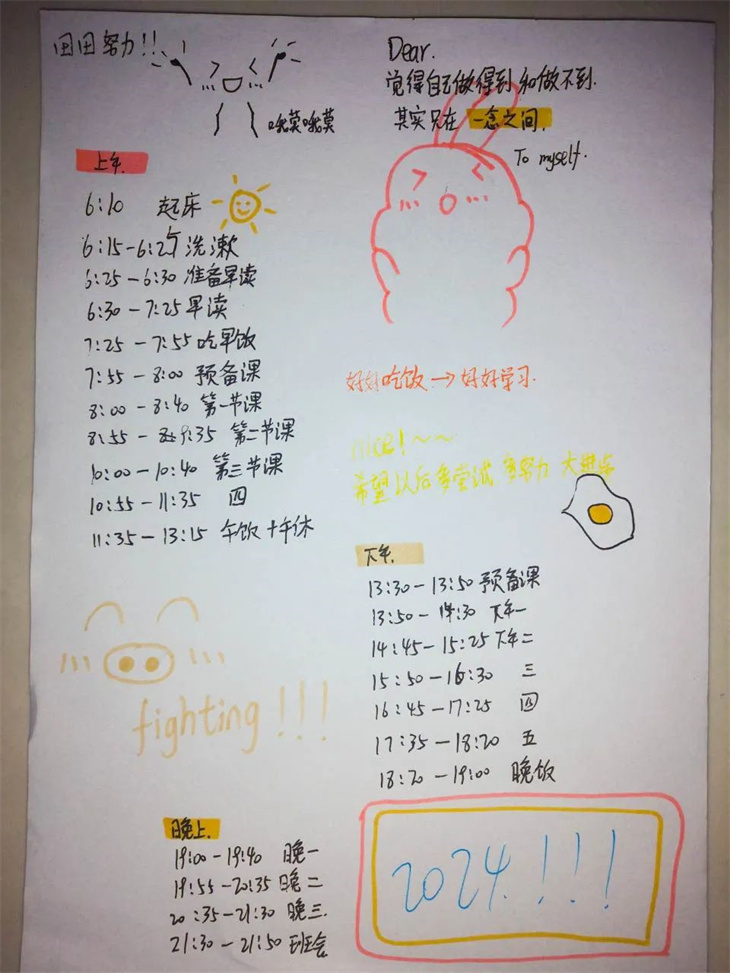 田田努力!!
哦莫哦莫
Dear.
觉得自己做得到和做不到.
其实只在 一念之间.
To myself.
上午.
6:10 起床
6:15-6:25 洗漱
6:25-6:30 准备早读
6:30-7:25 早读
7:25-7:55 吃早饭
7:55-8:00 预备课
8:00-8:40 第一节课
8:55-9:35 第二节课
10:00-10:40 第三节课
10:55-11:35 四
11:35-13:15 午饭+午休
好好吃饭→好好学习.
nice!~~
希望以后多尝试 多努力 大进步
下午.
13:30-13:50 预备课
13:50-14:30 下午一
14:45-15:25 下午二
15:50-16:30 三
16:45-17:25 四
17:35-18:20 五
18:20-19:00 晚饭
fighting!!!
晚上.
19:00-19:40 晚一
19:55-20:35 晚二
20:35-21:30 晚三.
21:30-21:50 班会
2024.!!!